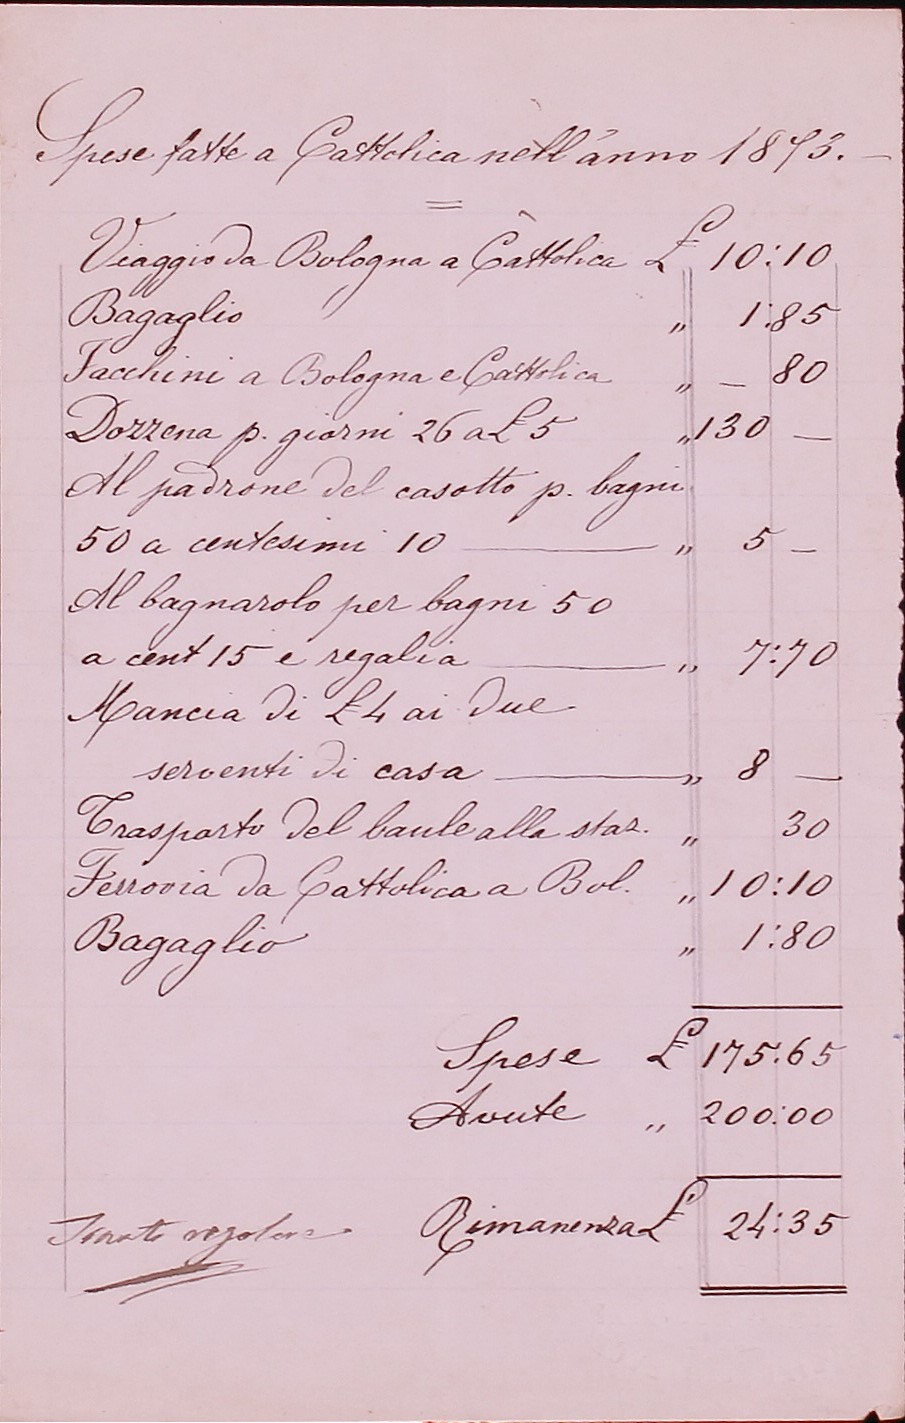 Spese fatte a Cattolica nell'anno 1873. —
Viaggio da Bologna a Cattolica £ 10:10
Bagaglio „ 1:85
Facchini a Bologna e Cattolica „ — 80
Dozzena p. giorni 26 a £ 5 „ 130 —
Al padrone del casotto p. bagni
50 a centesimi 10 — „ 5 —
Al bagnarolo per bagni 50
a cent 15 e regalia — „ 7:70
Mancia di £ 4 ai due
serventi di casa — „ 8 —
Trasporto del baule alla staz. „ 30
Ferrovia da Cattolica a Bol. „ 10:10
Bagaglio „ 1:80
Spese £ 175:65
Avute „ 200:00
Rimanenza £ 24:35
regolare